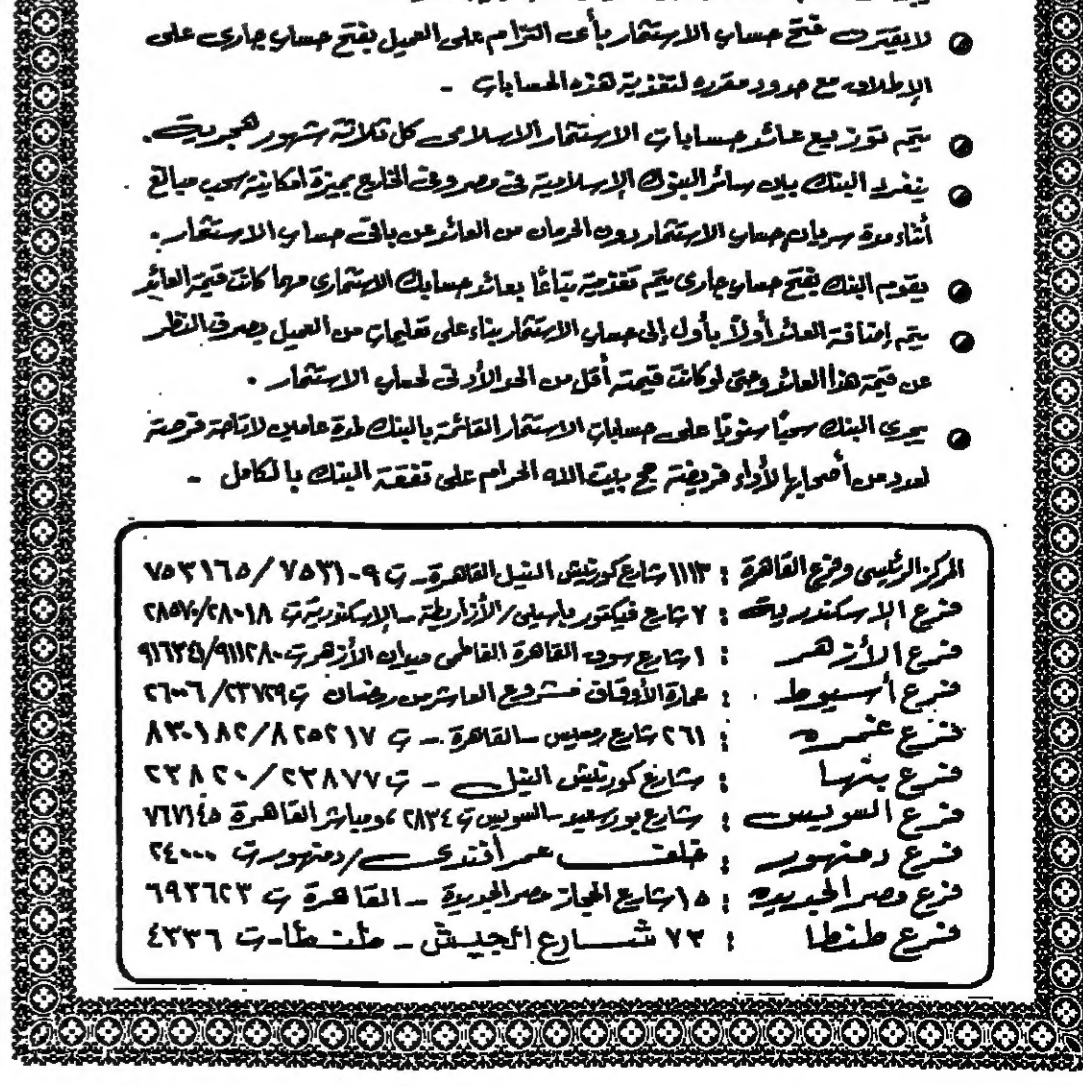 لا يقترن فتح حساب الاستثمار بأى التزام على العميل بفتح حساب جارى على
الإطلاق مع حدود مقرره لتغذية هذه الحسابات -
يتم توزيع عائد حسابات الاستثمار الاسلامى كل ثلاثة شهور هجرية.
ينفرد البنك بين سائر البنوك الإسلامية فى مصر وفى الخارج بميزة امكانية سحب مبالغ
أثناء مدة سريان حساب الاستثمار دون الحرمان من العائد عن باقى حساب الاستثمار.
يقوم البنك بفتح حساب جارى يتم تغذيته تباعًا بعائد حسابك الاستثمارى مهما كانت قيمة العائد
يتم إضافة العائد أولاً بأول إلى حساب الاستثمار بناء على تعليمات من العميل بصرف النظر
عن قيمة هذا العائد وحتى لو كانت قيمته أقل من الحد الأدنى لحساب الاستثمار .
يجرى البنك سحبًا سنويًا على حسابات الاستثمار القائمة بالبنك لمدة عامين لاتاحة فرصة
لعدد من أصحابها لأداء فريضة حج بيت الله الحرام على نفقة البنك بالكامل -
المركز الرئيسى وفرع القاهرة : ١١١٣ شارع كورنيش النيل القاهرة - ت ٧٥٣١٠٩ / ٧٥٣١٦٥
فرع الإسكندرية : ٧ شارع فيكتور باسيلى / الأزاريطة - الإسكندرية ت ٢٨٠١٨/٢٨٥٧٠
فرع الأزهر : ١ شارع سوق القاهرة الفاطمى ميدان الأزهر ت ٩١١٢٨٠
فرع أسيوط : عمارة الأوقاف مشروع العاشر من رمضان ت ٢٣٧٢٩ / ٢٦٠٠٦
فرع غمره : ٢٦١ شارع رمسيس - القاهرة - ت ٨٢٥٢١٧ / ٨٣٠١٨٢
فرع بنها : شارع كورنيش النيل - ت ٢٣٨٧٧ / ٢٣٨٢٠
فرع السويس : شارع بورسعيد - السويس ت ٢٨٣٤ ، ومباشر القاهرة ٧٦٧١٤٥
فرع دمنهور : خلف عمر أفندى / دمنهور ت ٢٤٠٠٠
فرع مصر الجديده : ١٥ شارع الحجاز مصر الجديدة - القاهرة ت ٦٩٣٦٢٣
فرع طنطا : ٧٣ شارع الجيش - طنطا - ت ٤٣٣٦